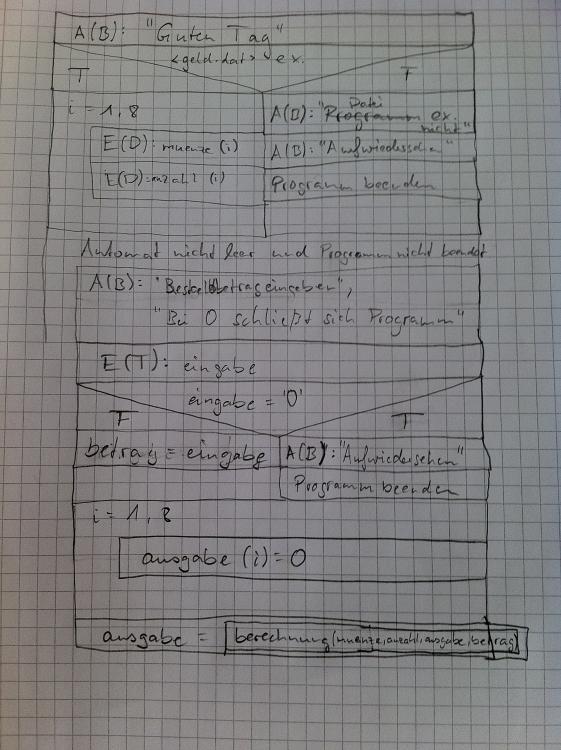 A(B): "Guten Tag"
<geld.dat> ex.
T F
i = 1,8
E(D): muenze (i)
E(D): anzahl (i)
A(B): "Programm Datei ex. nicht"
A(B): "Aufwiedersehen"
Programm beenden
Automat nicht leer und Programm nicht beendet
A(B): "Bestellbetrag eingeben",
"Bei 0 schließt sich Programm"
E(T): eingabe
eingabe = '0'
F T
betrag = eingabe
A(B): "Aufwiedersehen"
Programm beenden
i = 1,8
ausgabe (i) = 0
ausgabe = berechnung(muenze,anzahl,ausgabe,betrag)